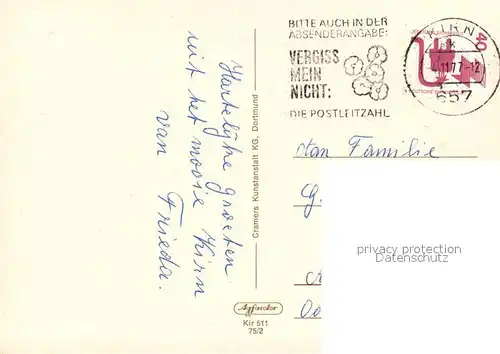 BITTE AUCH IN DER
ABSENDERANGABE:
VERGISS
MEIN
NICHT:
DIE POSTLEITZAHL
KIRN
11.77-12
657
40
DEUTSCHE
Hartelijke groeten
uit het mooie Kirn
van Frieda.
Cramers Kunstanstalt KG, Dortmund
an Familie
G.
privacy protection
Datenschutz
Agfacolor
Kir 511
75/2